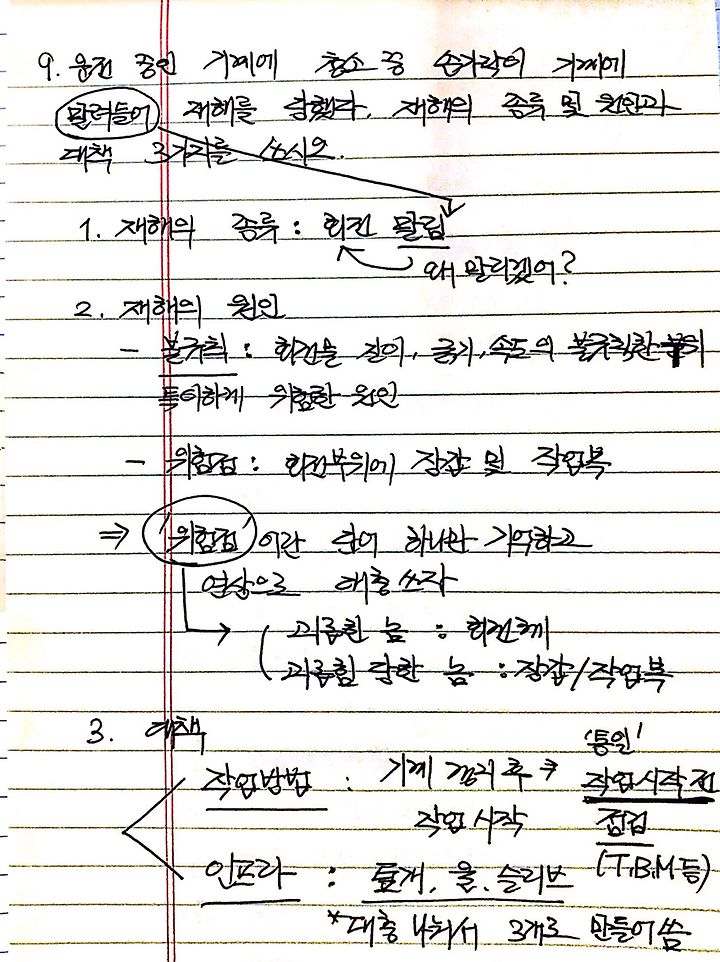 9. 운전 중인 기계에 청소 중 손가락이 기계에
말려들어 재해를 당했다. 재해의 종류 및 원인과
대책 3가지를 쓰시오.
1. 재해의 종류 : 회전 말림
왜 말리겠어?
2. 재해의 원인
- 불규칙 : 회전물 길이, 굵기, 속도의 불규칙한 부위
특이하게 위험한 원인
- 위험점 : 회전부위에 장갑 및 작업복
⇒ '위험점'이란 단어 하나만 기억하고
연상으로 대충 쓰자
괴롭힌 놈 : 회전체
괴롭힘 당한 놈 : 장갑/작업복
3. 대책
'통일'
작업방법 : 기계 정지 후 → 작업시작 전
작업 시작 점검
인프라 : 덮개, 울, 슬리브 (T.B.M 등)
*대충 나눠서 3개로 만들어 씀